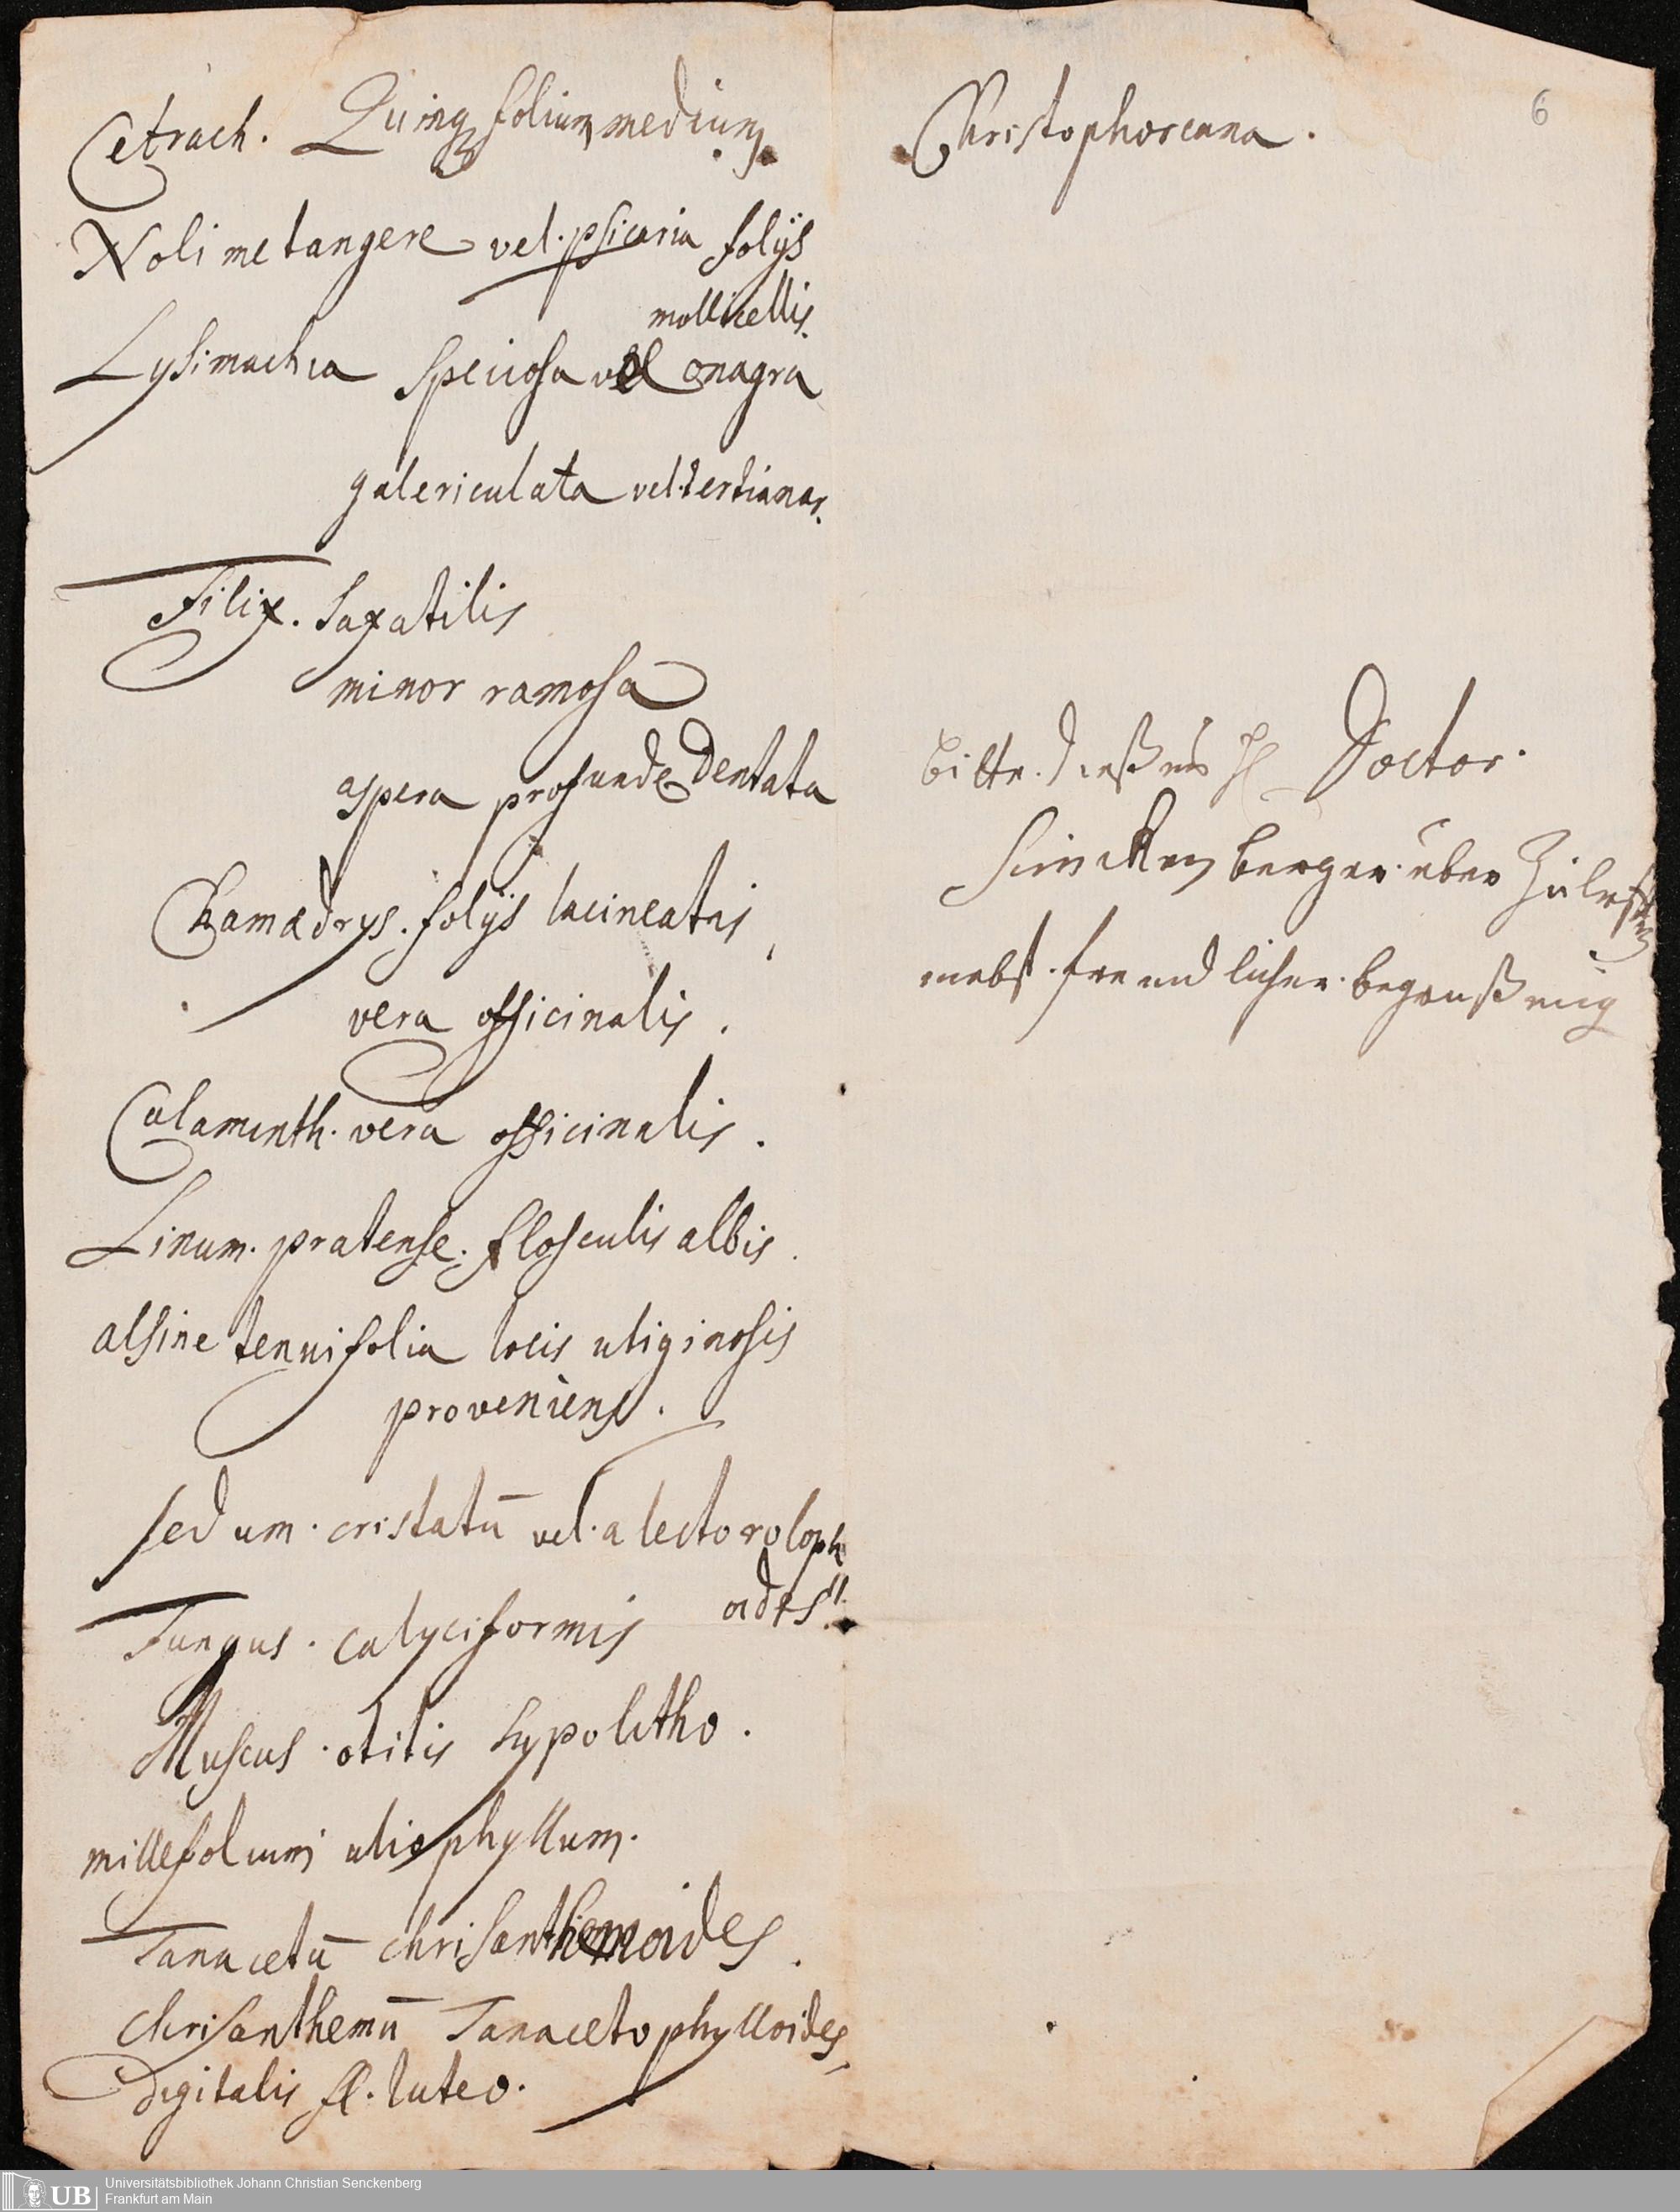 Cetrach. Quinq folium medium.
Noli me tangere vel. psicaria folijs
mollicellis.
Lysimachia Speciosa vel onagra
galericulata vel. tertianar.
Filix. Saxatilis
minor ramosa
aspera profunde Dentata
Chamædrys. folijs lacineatis
vera officinalis.
Calaminth. vera officinalis.
Linum. pratense. flosculis albis.
alsine tenuifolia locis uliginosis
proveniens.
sedum. cristatū vel. alectoroloph
oides.
Fungus. calyciformis
Muscus. otitis hypolitho.
millefolium phyllum.
Tanacetū chrisanthemoides.
chrisanthemū Tanacetophylloides,
Digitalis fl. luteo.
Christophoreana.
6
bitte. dießes H Doctor.
berger. über
nebst. freundlicher. begrüßung
Universitätsbibliothek Johann Christian Senckenberg
Frankfurt am Main
UB